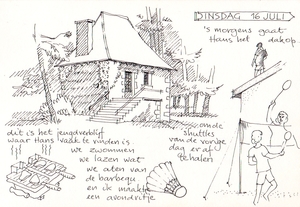 DINSDAG 16 JULI
's morgens gaat
Hans het dakop
om de
shuttles
van de vorige
dag er af
te halen
dit is het jeugdverblijf
waar Hans vaak te vinden is
we zwommen
we lazen wat
we aten van
de barbequ
en ik maakte
een avondritje